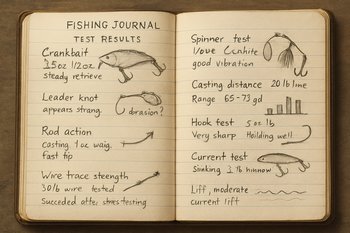 FISHING JOURNAL
TEST RESULTS
Crankbait
steady retrieve
Leader knot
appears strang.
brasion?
Rod action
Casting
fast tip
Wire trace steength
30lb wire tested
Succeded
Spinner test
good vibration
Casting distance 20 lb line
Range 65-73 gd
Hook test 5 oz lb
Very sharp Hoilding well
Current test
Sinking 3 lb
Liff, moderate
current lift